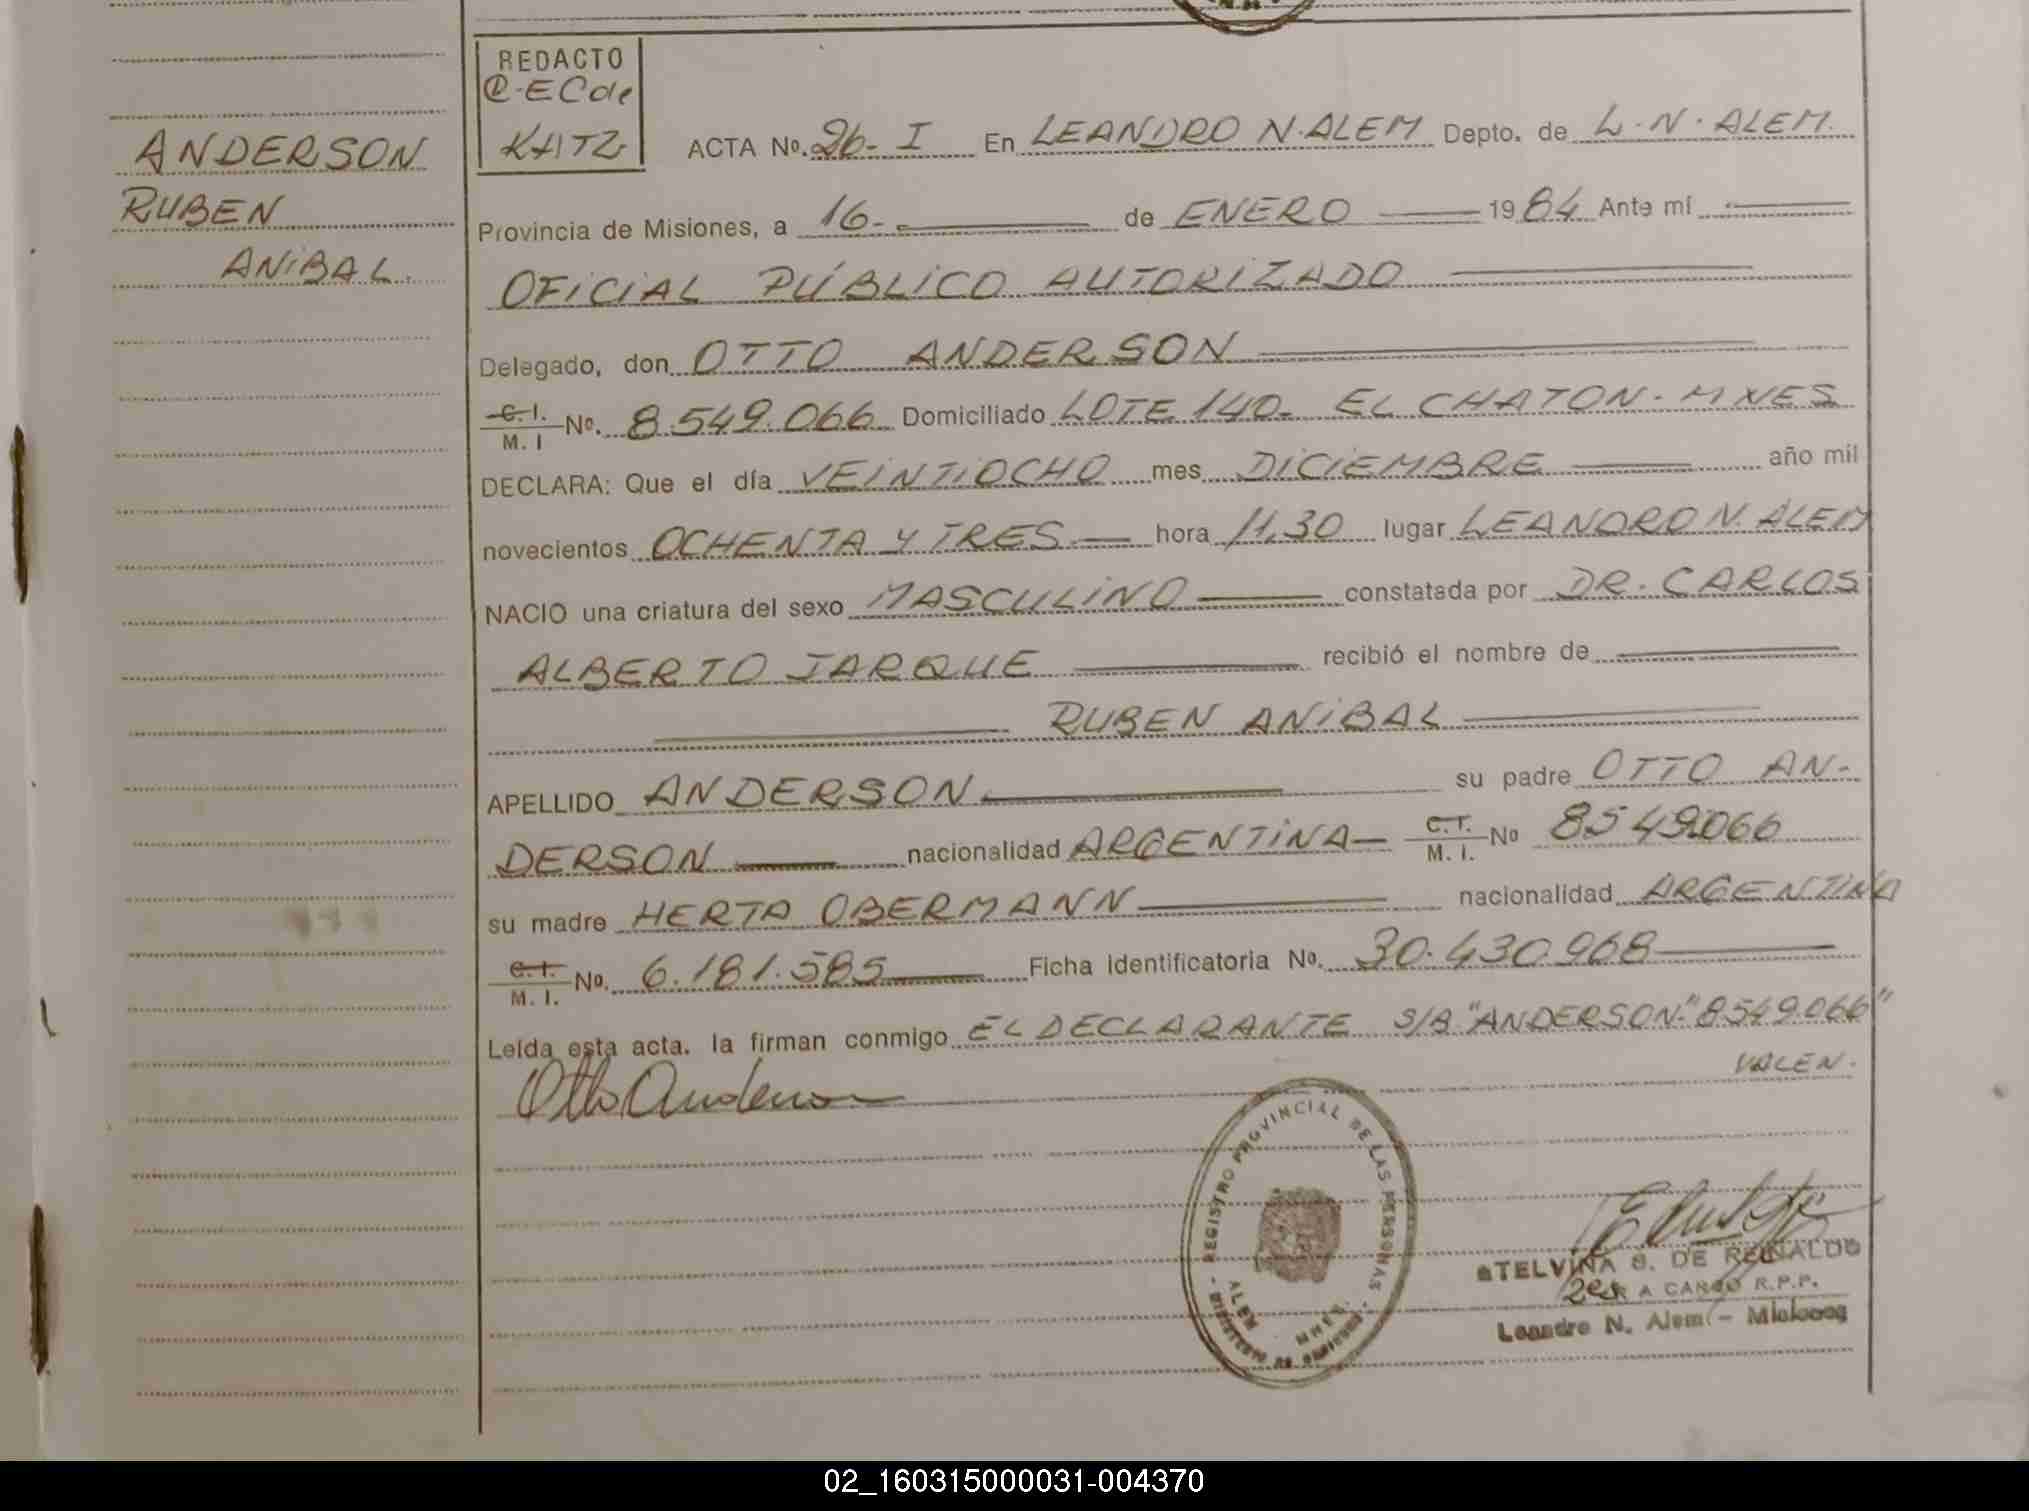 ANDERSON
RUBEN
ANIBAL.
REDACTO
C.E.C de
KATZ
ACTA Nº. 26-I En LEANDRO N. ALEM Depto. de L.N. ALEM.
Provincia de Misiones, a 16- de ENERO 1984 Ante mí
OFICIAL PÚBLICO AUTORIZADO
Delegado, don OTTO ANDERSON
C. I. / M. I Nº. 8.549.066 Domiciliado LOTE 140- EL CHATON- MNES
DECLARA: Que el día VEINTIOCHO mes DICIEMBRE año mil
novecientos OCHENTA Y TRES hora 11,30 lugar LEANDRO N. ALEM
NACIO una criatura del sexo MASCULINO constatada por DR. CARLOS
ALBERTO JARQUE recibió el nombre de
RUBEN ANIBAL
APELLIDO ANDERSON su padre OTTO AN-
DERSON nacionalidad ARGENTINA C. I. / M. I. Nº 8.549.066
su madre HERTA OBERMANN nacionalidad ARGENTINA
C. I. / M. I. Nº. 6.181.585 Ficha Identificatoria Nº. 30.430.968
Leída esta acta. la firman conmigo EL DECLARANTE S/B "ANDERSON" "8549.066"
VALEN.
Otto Anderson
REGISTRO PROVINCIAL DE LAS PERSONAS
MINISTERIO DE GOBIERNO
ALEM MNES.
ETELVINA S. DE REINALDO
A CARGO R.P.P.
Leandro N. Alem - Misiones
02_160315000031-004370